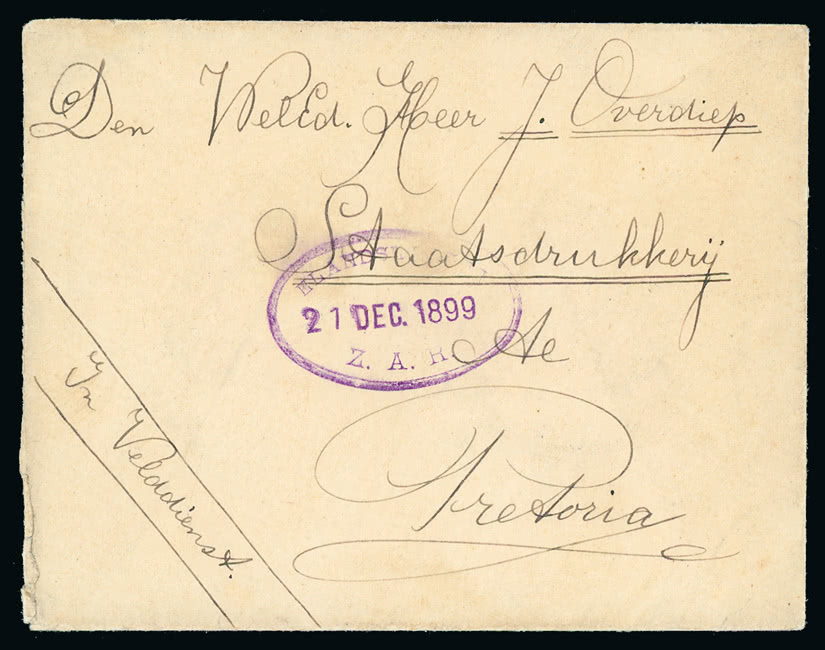 Den WelEd. Heer J. Overdiep
Staatsdrukkerij
te
Pretoria
In Velddienst.
21 DEC. 1899
Z. A. R.